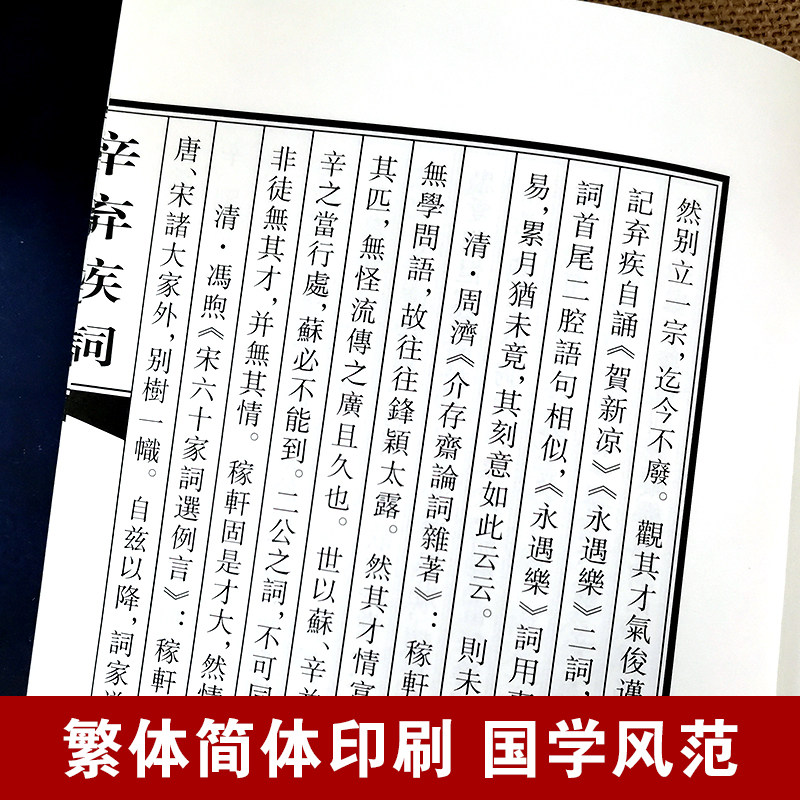 然别立一宗,迄今不廢。觀其才氣俊邁
記弃疾自誦《賀新凉》《永遇樂》二詞,
詞首尾二腔語句相似,《永遇樂》詞用
易,累月猶未竟,其刻意如此云云。則未
清·周濟《介存齋論詞雜著》:稼軒
無學問語,故往往鋒穎太露。然其才情富
其匹,無怪流傳之廣且久也。世以蘇、辛並
辛之當行處,蘇必不能到。二公之詞,不可同
非徒無其才,并無其情。稼軒固是才大,然情
清·馮煦《宋六十家詞選例言》:稼軒
唐、宋諸大家外,别樹一幟。自兹以降,詞家
辛弃疾詞
繁体简体印刷 国学风范